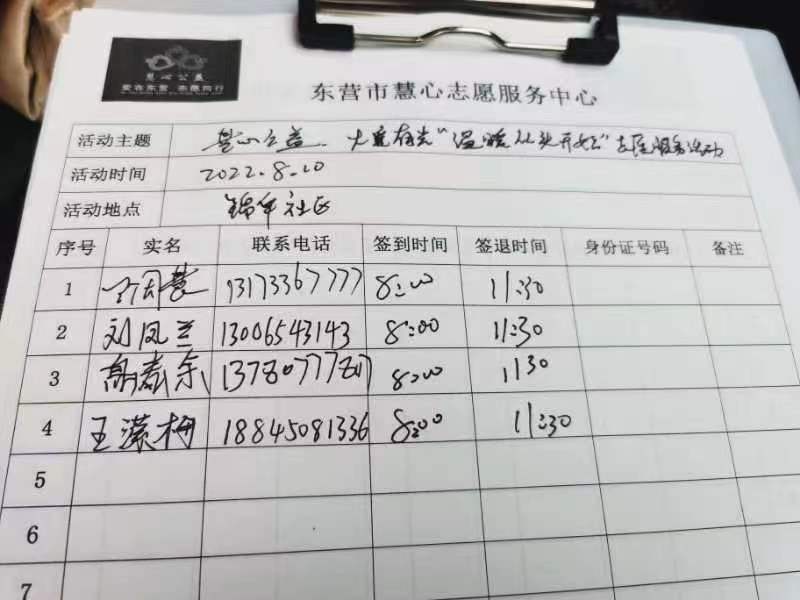 慧心公益
爱在东营 志愿同行
东营市慧心志愿服务中心
活动主题 慧心公益、大爱有光"温暖从头开始"志愿服务活动
活动时间 2022.8.20
活动地点 锦华社区
序号 实名 联系电话 签到时间 签退时间 身份证号码 备注
1 13173367777 8:00 11:30
2 刘凤兰 13006543143 8:00 11:30
3 8:00 11:30
4 王濛梅 18845081336 8:00 11:30
5
6
7